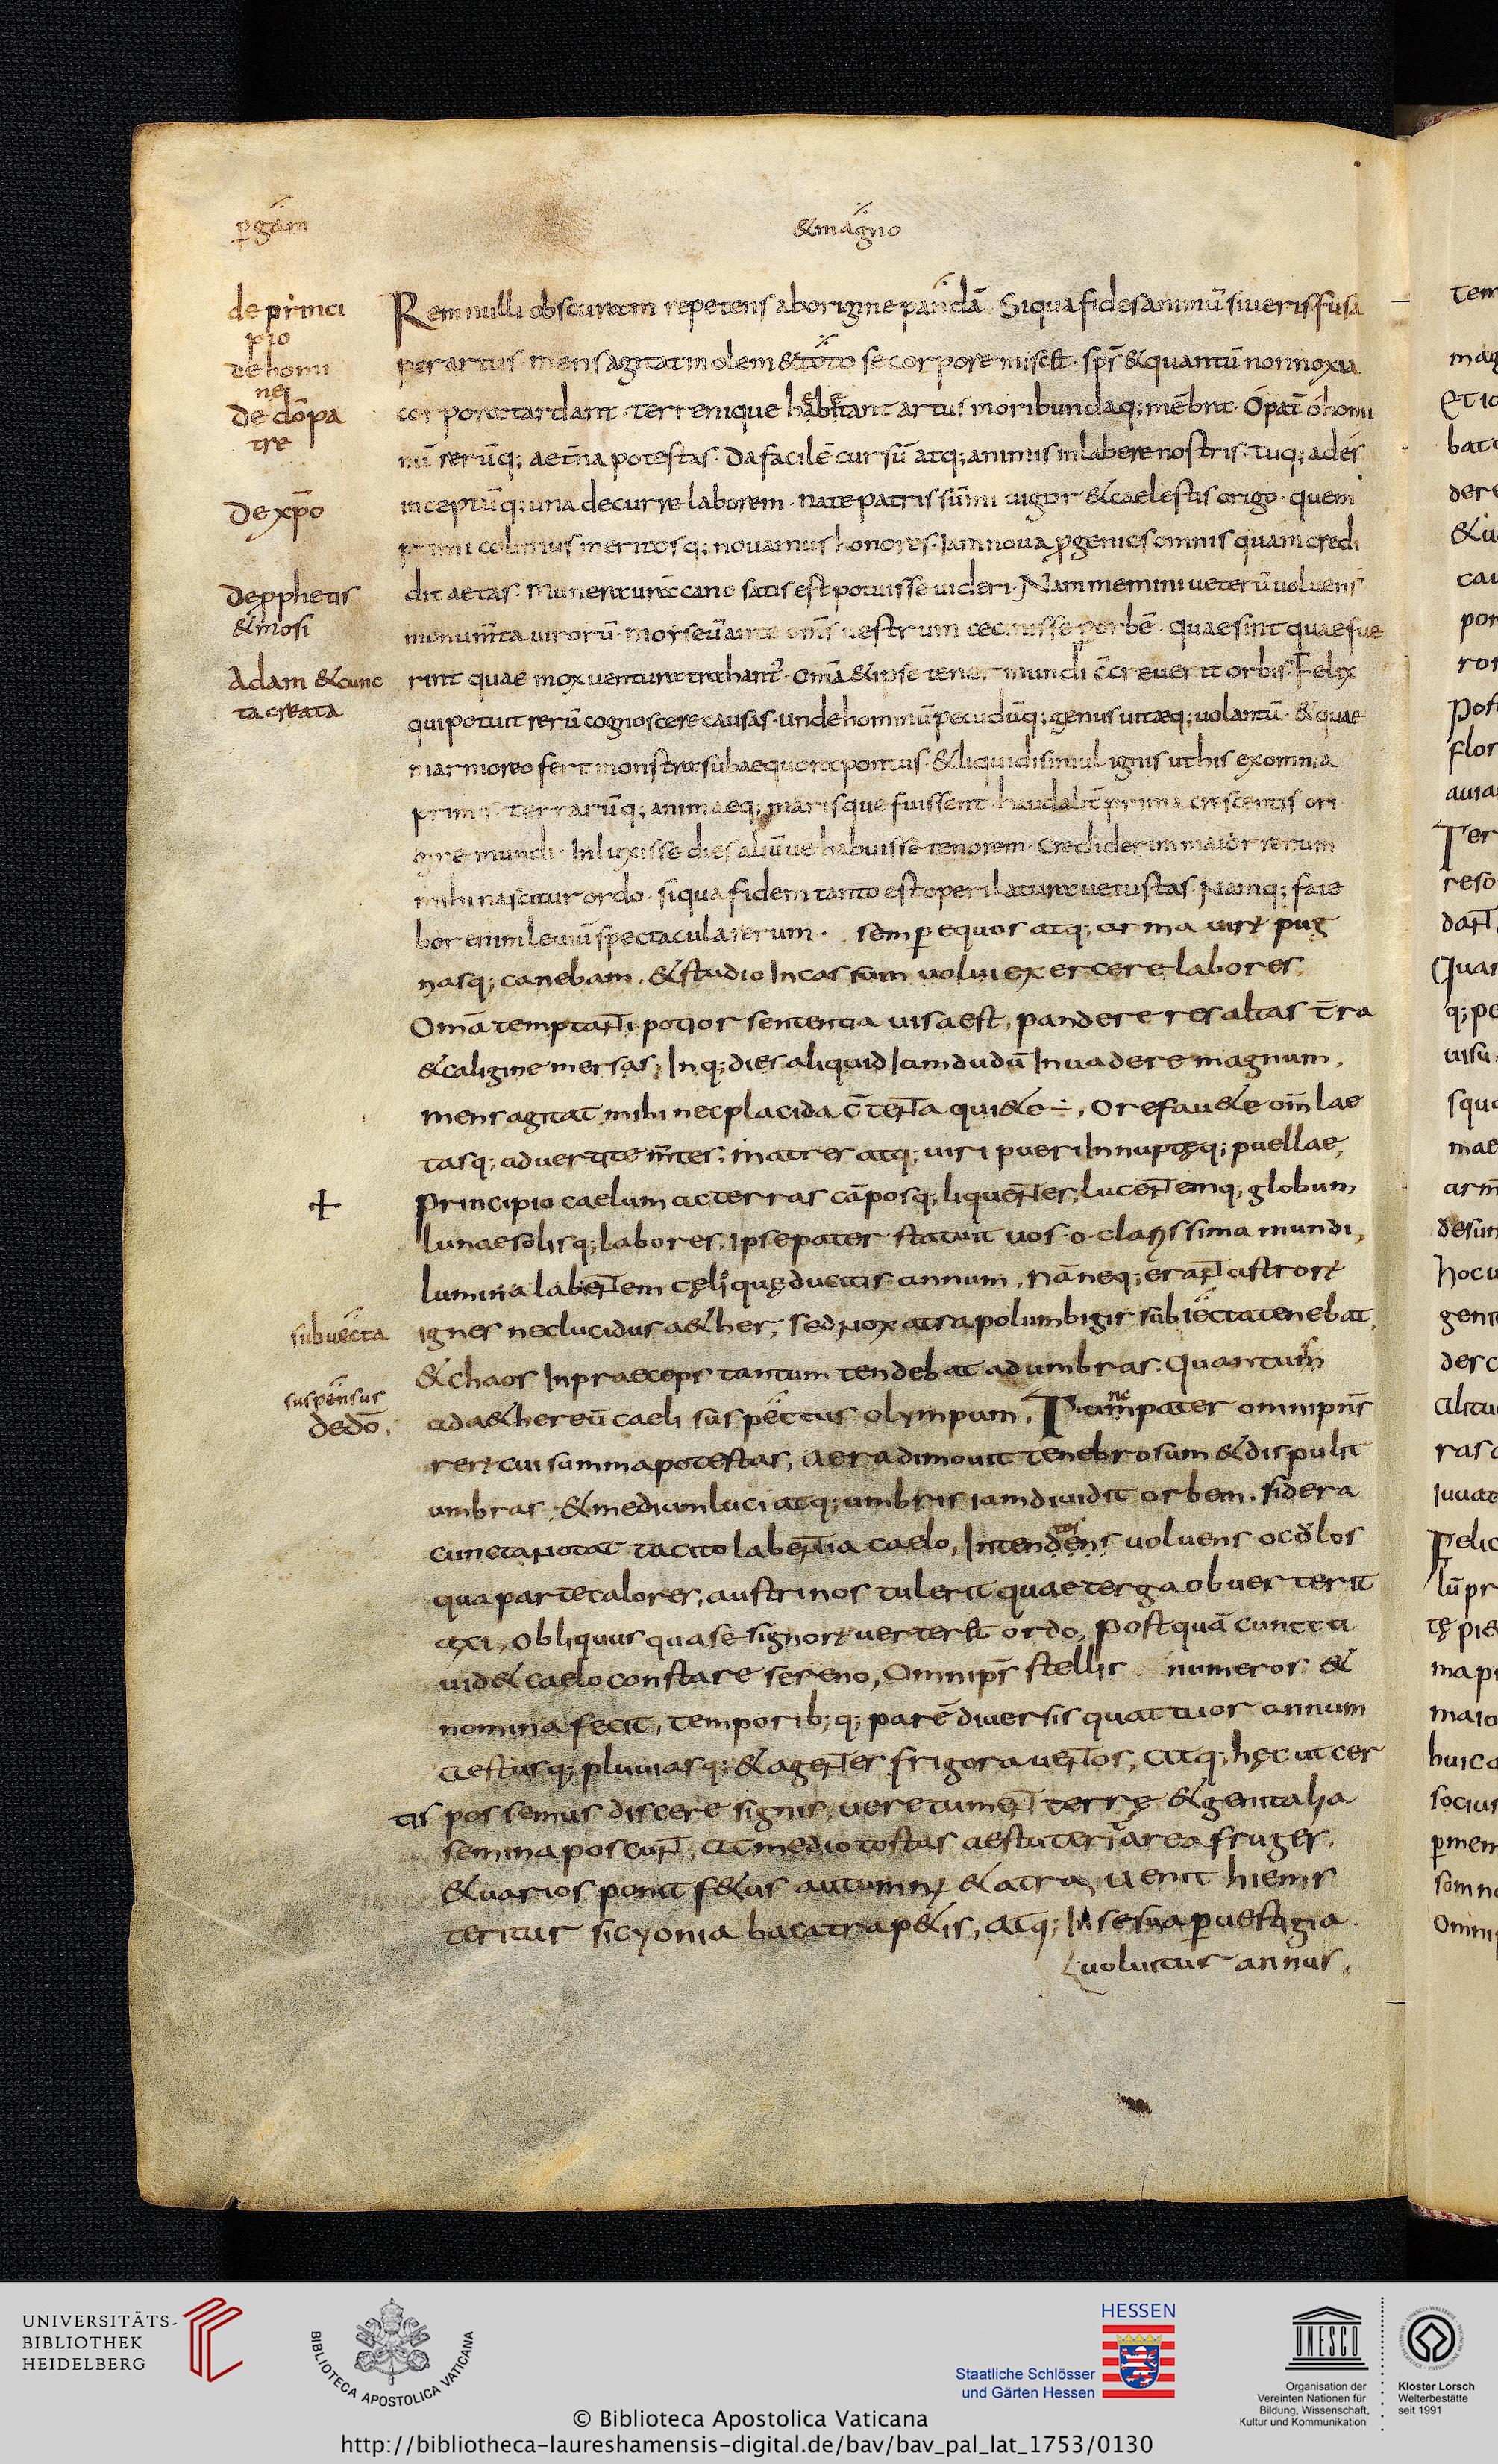 ꝑgam
&magno
de princi
pio
de homi
ne
de do͞ pa
tre
De xp͞o
De ꝓphetis
& mosi
Adam & cunc
ta creata
Rem nulli obscuram repetens ab origine pandā Siqua fides animū si ueris fusa
per artus mens agitat molem & toto se corpore miscet. sp͞s & quantū non noxia
corpora tardant terrenique habitant artus moribundaq; mēbra. O pat͞ o homi
nū rerūq; aet͞na potestas. Da facilē cursū atq; animis inlabere nostris. tuq; ades
inceptūq; una decurre laborem. nate patris sūmi uigor & caelestis origo. quem
primi colimus meritosq; nouamus honores. Iam noua ꝓgenies omnis quam credi
dit aetas. Munera cano satis est potuisse uideri. Nam memini ueterū uoluens
monum͞ta uirorū. moyseū ante om͞s uestrum cecinisse ꝑ orbē. quae sint quae fue
rint quae mox uentura trahant᷑. om͞a & ipse tener mundi c͞creuerit orbis. Felix
qui potuit rerū cognoscere causas. unde hominū pecudūq; genus uitaeq; uolantū. & quae
marmoreo fert monstra sub aequore pontus. & liquidi simul ignis ut his ex omnia
primis. terrarūq; animaeq; marisque fuissent haud alit͞ prima crescentis ori
gine mundi. Inluxisse dies aliūue habuisse tenorem. Crediderim maior rerum
mihi nascitur ordo. siqua fidem tanto est operi latura uetustas. Namq; fate
bor enim leuiū spectacula rerum. semꝑ equos atq; arma uirꝝ pug
nasq; canebam. & studio Incassum uolui exercere labores.
Om͞a temptanti potior sententia uisa est, pandere res altas t͞ra
& caligine mersas; Inq; dies aliquid Iamdudū Inuadere magnum.
mens agitat mihi nec placida c͞tenta quiete ÷, Ore fauete om͞ lae
tasq; aduertite m͞tes. matres atq; uiri pueri Innuptęq; puellae,
+
principio caelum ac terras cāposq; liquentes; lucentemq; globum
lunae solisq; labores. ipse pater statuit uos o clarissima mundi,
lumina labentem cęlo quę ducitis annum. Nā neq; erant astrorꝝ
subuecta
ignes nec lucidus aether; sed nox atra polum bigis subiecta tenebat,
& chaos Inpraeceps tantum tendebat ad umbras. Quantum
suspensus
de do͞.
ad aethereū caeli suspectus olympum. Tum pater omnip͞ns
ne
rerꝝ cui summa potestas, aera dimouit tenebrosum & dispulit
umbras & medium luci atq; umbris iam diuidit orbem. sidera
cuncta notat tacito labentia caelo, Intendens uoluens oculos
tos
qua parte calores, austrinos tulerit quae terga obuerterit
axi, obliquus qua se signorꝝ uerteret ordo, postquā cuncta
uidet caelo constare sereno, Omnip͞s stellis numeros &
nomina fecit, temporib; q; parē diuersis quattuor annum
aestusq; pluuiasq; & agentes frigora uentos; Atq; hęc ut cer
tis possemus discere signis, uere tument terrę & genitalia
semina poscunt, at medio tostas aestu terit area fruges.
& uarios ponit fetus autumnꝫ & atra, uenit hiems
teritur sicyonia baca trapetis, atq; In se sua ꝑ uestigia
uoluitur annus.
UNIVERSITÄTS-
BIBLIOTHEK
HEIDELBERG
BIBLIOTECA APOSTOLICA VATICANA
HESSEN
Staatliche Schlösser
und Gärten Hessen
UNESCO
Organisation der
Vereinten Nationen für
Bildung, Wissenschaft,
Kultur und Kommunikation
Kloster Lorsch
Welterbestätte
seit 1991
© Biblioteca Apostolica Vaticana
http://bibliotheca-laureshamensis-digital.de/bav/bav_pal_lat_1753/0130